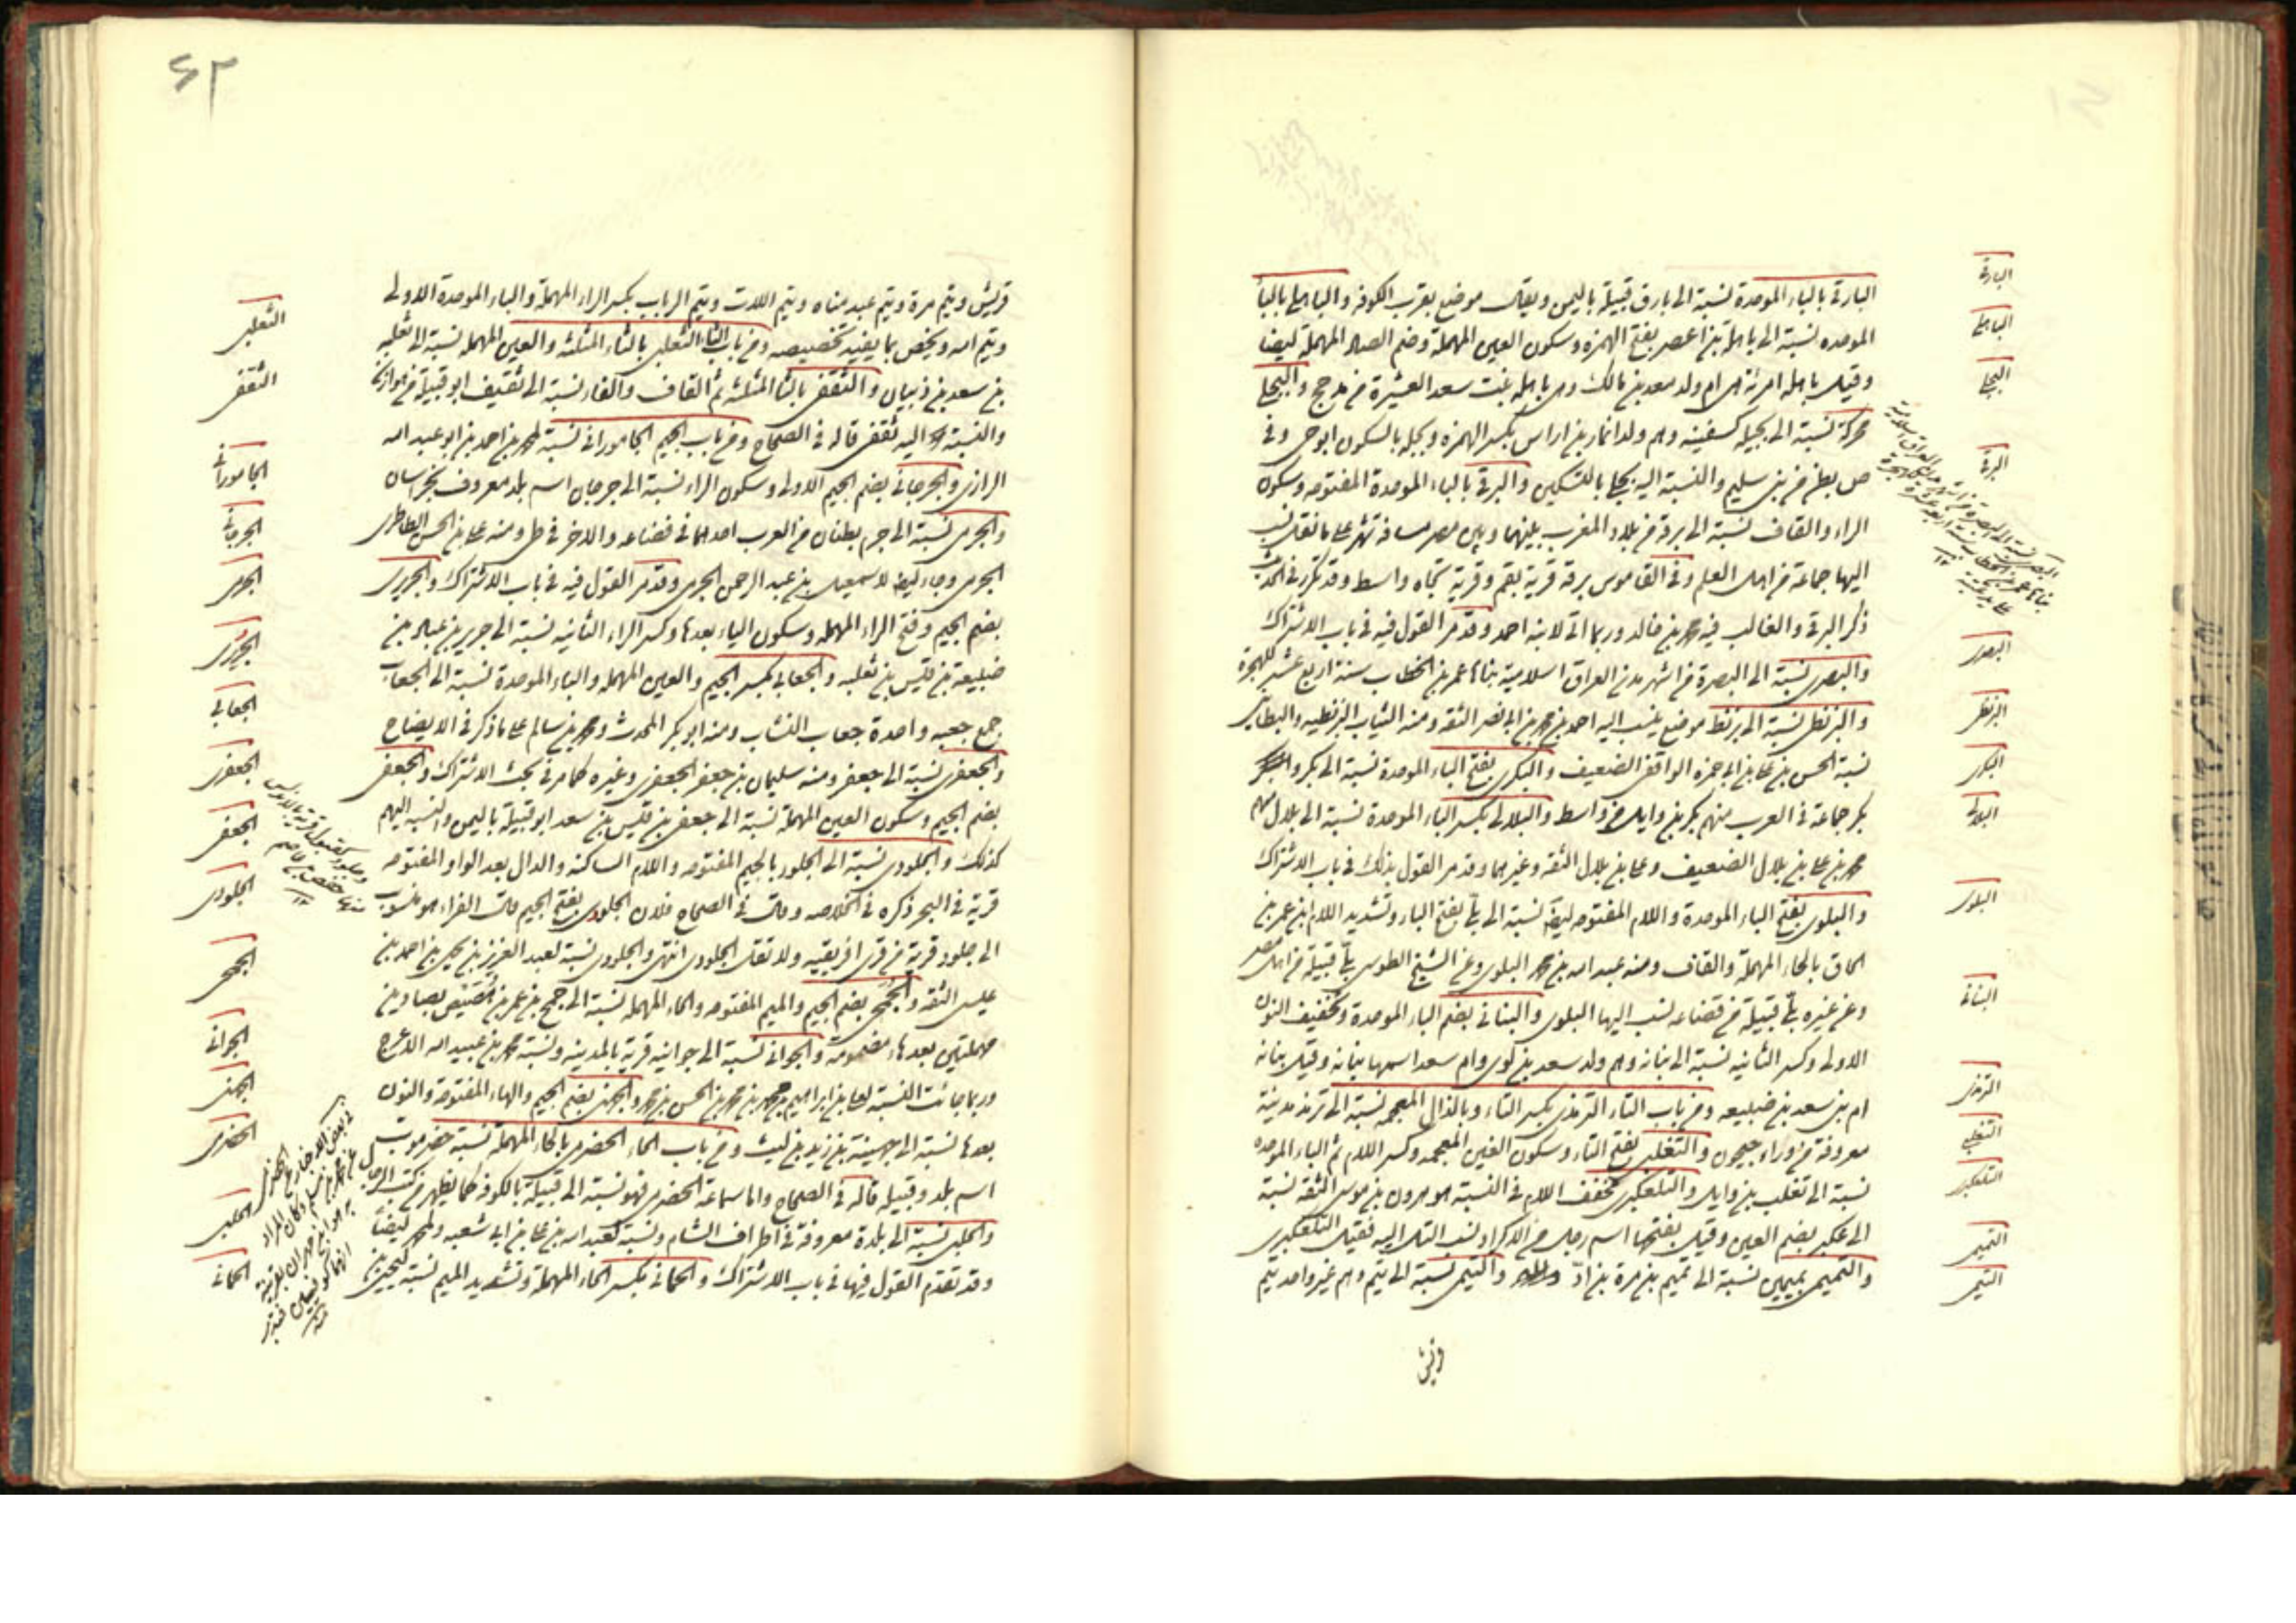 البارقى بالباء الموحدة نسبة الى بارق قبيلة باليمن ويقال موضع بقرب الكوفة والباهلى بالباء
الموحده نسبة الى باهلة بن اعصر بفتح الهمزه وسكون العين المهملة وضم الصاد المهملة ايضا
وقيل باهله امرئة ام ولد معد بن مالك وهى باهله بنت سعد العشيرة من مذحج والبجلى
محركة نسبة الى بجيله كسفينه وهم ولد انمار بن اراش بكسر الهمزه وبجله بالسكون ابوحى وفى
ص بطن من بنى سليم والنسبة اليه بجلى بالتسكين والبرقى بالباء الموحدة المفتوحه وسكون
الراء والقاف نسبة الى برقة من بلاد المغرب بينهما وبين مصر مسافة شهر على ما نقل نسب
اليها جماعة من اهل العلم وفى القاموس برقة قرية بقم وقرية تجاه واسط وقد تكرر فى الحديث
ذكر البرقى والغالب فيه محمد بن خالد وربما اتى لابنه احمد وقد مر القول فيه فى باب الاشتراك
والبصرى نسبة الى البصرة من اشهر مدن العراق اسلامية بناها عمر بن الخطاب سنة اربع عشر للهجرة
والبزنطى نسبة الى بزنط موضع ينسب اليه احمد بن محمد بن ابى نصر الثقه ومنه الثياب البزنطيه والبطاينى
نسبة الحسن بن على بن ابى حمزه الواقفى الضعيف والبكرى بفتح الباء الموحدة نسبة الى بكر و
بكر جماعة فى العرب منهم بكر بن وايل من واسط والبلالى بكسر الباء الموحدة نسبة الى بلال منهم
محمد بن على بن بلال الضعيف وعلى بن بلال الثقه وغيرهما وقد مر القول بذلك فى باب الاشتراك
والبلوى بفتح الباء الموحدة واللام المفتوحه ايضا نسبة الى بلى بفتح الباء وتشديد اللام ابن عمر بن
الحاق بالحاء المهملة والقاف ومنه عبد الله بن محمد البلوى وعن الشيخ الطوسى بلى قبيلة من اهل مصر
وعن غيره بلى قبيلة من قضاعه نسب اليها البلوى والبنانى بضم الباء الموحدة وتخفيف النون
الاولى وكسر الثانيه نسبة الى بنانه وهم ولد سعد بن لوى وام سعد اسمها بنانه وقيل بنانه
ام بنى سعد بن ضبيعه ومن باب التاء الترمذى بكسر التاء وبالذال المعجمه نسبة الى ترمذ مدينة
معروفة من وراء جيحون والتغلبى بفتح التاء وسكون الغين المعجمه وكسر اللام ثم الباء الموحده
نسبة الى تغلب بن وايل والتلعكبرى مخفف اللام فى النسبة هو هرون بن موسى الثقه نسبة
الى عكبر بضم العين وقيل بفتحها اسم رجل من الاكراد نسب التل اليه فقيل التلعكبرى
والتميمى بميمين نسبة الى تميم بن مرة بن ادّ والتيمى نسبة الى تيم وهم غير واحد تيم
البارقى
الباهلى
البجلى
البرقى
البصرى
البزنطى
البكرى
البلالى
البلوى
البنانى
الترمذى
التغلبى
التلعكبرى
التميمى
التيمى
قريش
٤٣
قريش وتيم مرة وتيم عبد مناه وتيم اللات وتيم الرباب بكسر الراء المهملة والباء الموحدة الاولى
وتيم الله ويخص بما يفيد تخصيصه ومن باب الثاء الثعلبى بالثاء المثلثه والعين المهمله نسبة الى ثعلبه
بن سعد بن ذبيان والثقفى بالثاء المثلثه ثم القاف والفاء نسبة الى ثقيف ابو قبيلة من هوازن
والنسبة اليه ثقفى قاله فى الصحاح ومن باب الجيم الجامورانى نسبة لمحمد بن احمد بن ابو عبد الله
الرازى والجرجانى بضم الجيم الاولى وسكون الراء نسبة الى جرجان اسم بلد معروف بخراسان
والجرمى نسبة الى جرم بطنان من العرب احدهما فى قضاعه والاخر فى طى ومنه على بن الحسن الطاطرى
الجرمى وجاء ايضا لاسمعيل بن عبد الرحمن الجرمى وقد مر القول فيه فى باب الاشتراك والجريرى
بضم الجيم وفتح الراء المهمله وسكون الياء بعدها وكسر الراء الثانيه نسبة الى جرير بن عباد بن
ضبيعة بن قيس بن ثعلبه والجعابى بكسر الجيم والعين المهمله والباء الموحدة نسبة الى الجعاب
جمع جعبه واحدة جعاب النشاب ومنه ابو بكر المحدث ومحمد بن سالم على ما ذكر فى الايضاح
والجعفرى نسبة الى جعفر ومنه سليمان بن جعفر الجعفرى وغيره كما مر فى بحث الاشتراك والجعفى
بضم الجيم وسكون العين المهملة نسبة الى جعفى بن قيس بن سعد ابو قبيلة باليمن والنسبه اليهم
كذلك والجلودى نسبة الى الجلود بالجيم المفتوحه واللام الساكنه والدال بعد الواو المفتوحه
قرية فى البحر ذكره فى الخلاصه وقال فى الصحاح فلان الجلودى بفتح الجيم قال الفراء هو منسوب
الى جلود قرية من قرى افريقيه ولا تقل الجلودى انتهى والجلودى نسبة لعبد العزيز بن يحيى بن احمد بن
عيسى الثقه والجمحى بضم الجيم والميم المفتوحه والحاء المهمله نسبة الى جمح بن عمر بن هصيص بصادين
مهملتين بعد هاء مضمومة والجوانى نسبة الى جوانيه قرية بالمدينه ونسبة محمد بن عبيد الله الاعرج
وربما جائت النسبة لعلى بن ابراهيم بن محمد بن الحسن بن محمد والجهنى بضم الجيم والهاء المفتوحة والنون
بعدها نسبة الى جهينة بن زيد بن ليث ومن باب الحاء الحضرمى بالحاء المهملة نسبة حضرموت
اسم بلد وقبيله قاله فى الصحاح واما سماعة الحضرمى فهو نسبة الى قبيلة بالكوفه كما يظهر من كتب الرجال
والحلبى نسبة الى بلدة معروفة فى اطراف الشام ونسبة لعبد الله بن على بن ابى شعبه ولمحمد ايضا
وقد تقدم القول فيها فى باب الاشتراك والحمانى بكسر الحاء المهملة وتشديد الميم نسبة ليحيى بن
الثعلبى
الثقفى
الجامورانى
الجرجانى
الجرمى
الجريرى
الجعابى
الجعفرى
الجعفى
الجلودى
الجمحى
الجوانى
الجهنى
الحضرمى
الحلبى
الحمانى